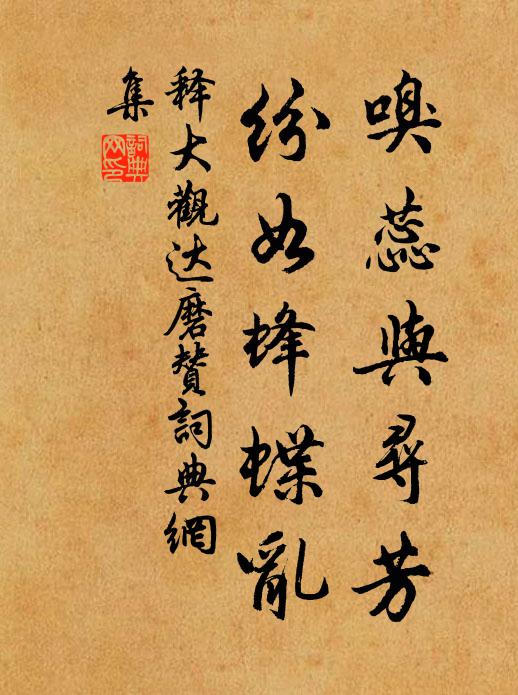 嗅蕊與尋芳
紛如蜂蝶亂
释大觀达磨贊詞典網
集
詞典